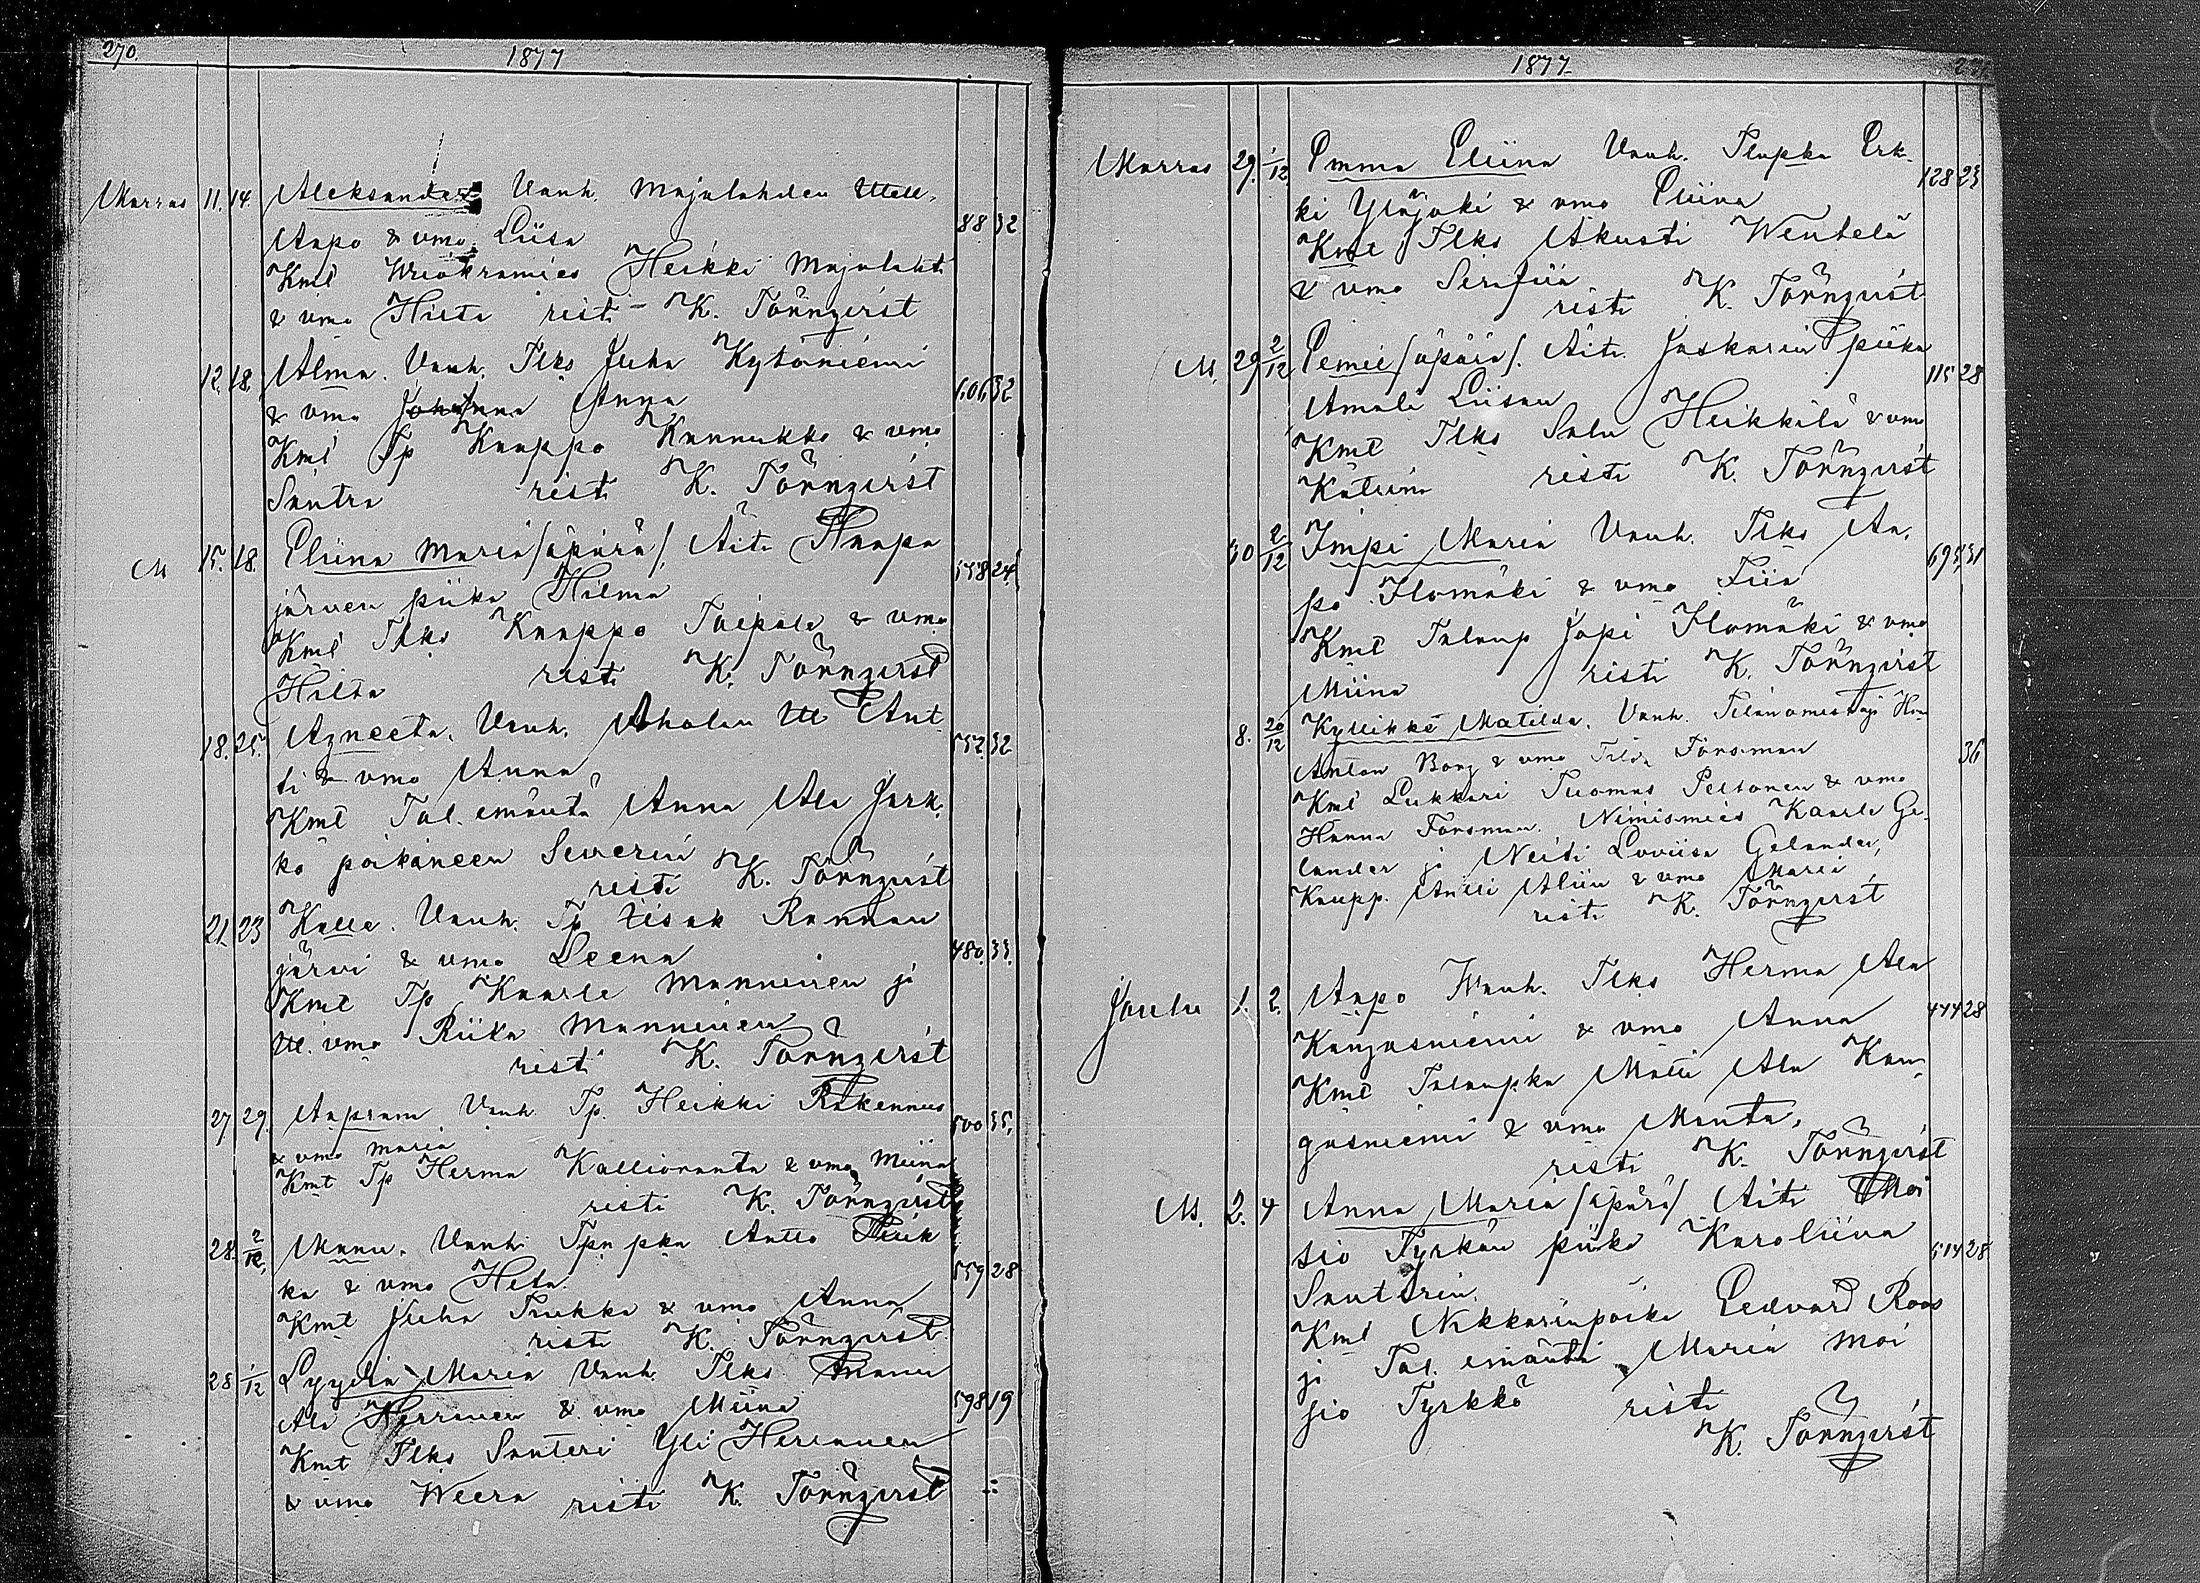 270.
1877
Marras 11. 14. Aleksander Vanh. Majalahden Itell.
Aapo & vmo. Liisa 88 32
Kml Heikki Majalaht
& vmo Hieta risti K. Törnqvist
12. 18. Alma. Vanh. Tlks Juha Kytöniemi
& vmo Johanna Anna 606 32
Kml Tp Kaappo Kannukko & vmo
Santra risti K. Törnqvist
M 15. 18. Eliina Maria /äpärä/ Äiti Haapa
järven piika Hilma 24
Kml Tlks Kaappo Taipale & vmo
Hilta risti K. Törnqvist
18. 25. Agneeta. Vanh. Aholan Itl Ant
ti & vmo Anna 552 32
Kml Tal. emäntä Anna Ala Jark
ko poikaneen Severin
risti K. Törnqvist
21. 23 Kalle. Vanh. Tp Iisak Rannan
järvi & vmo Leena 480. 33.
Kml Tp Kaarle Manninen ja
Itl. vmo Riika Manninen
risti K. Törnqvist
27 29. Aapram Vanh. Tp. Heikki Rakennus
& vmo Maria 500 35.
Kmt Tp Herma Kallioranta & vmo Miina
risti K. Törnqvist
28. 2/12. Manu. Vanh. Tpn pka Antto
ka & vmo Heta. 559 28
Kmt Juha & vmo Anna
risti K. Törnqvist
28 1/12 Lyydia Maria Vanh. Tlks Manu
Ala Herranen & vmo Miina 598 19
Kmt Tlks Santeri Yli Herranen
& vmo Weera risti K. Törnqvist
1877
Marras 29. 1/12 Emma Eliina Vanh. Tlnpka Erk-
ki Yläjoki & vmo Eliina 128 23
Kml Tlks Akusti Wentelä
& vmo Serafiia
risti K. Törnqvist
M. 29 2/12 Eemil /äpärä/. Äiti. Jaskarin piika
Amali Liisan 115 28
Kml Tlks Salu Heikkilä & vmo
Katriina risti K. Törnqvist
30 2/12 Impi Maria Vanh. Tlks Aa.
po Ilomäki & vmo Fiia 695 31
Kml Talonp Japi Ilomäki & vmo
Miina risti K. Törnqvist
8. 20/12 Kyllikki Matilda. Vanh. Tilanomistaja Hra
Anton Borg & vmo Tilda Forsman 36
Kml Lukkari Tuomas Peltonen & vmo
Hanna Forsman. Nimismies Kaarle Ge-
lander ja Neiti Loviisa Gelander,
Kaupp. Antti Aliin & vmo Maria
risti K. Törnqvist
Joulu 1. 2. Aapo Wanh. Tlks Herma Ala
Kangasniemi & vmo Anna 444 28
Kml Talonpka Matti Ala Kan
gasniemi & vmo Manta.
risti K. Törnqvist
M. 2. 4 Anna Maria /äpärä/ Äiti Moi
sio Tyrkön piika Karoliina 514 28
Santtrin.
Kml Nikkarinpoika Eedvard Roos
ja Tal. emäntä Maria Moi
sio Tyrkkö risti
K. Törnqvist